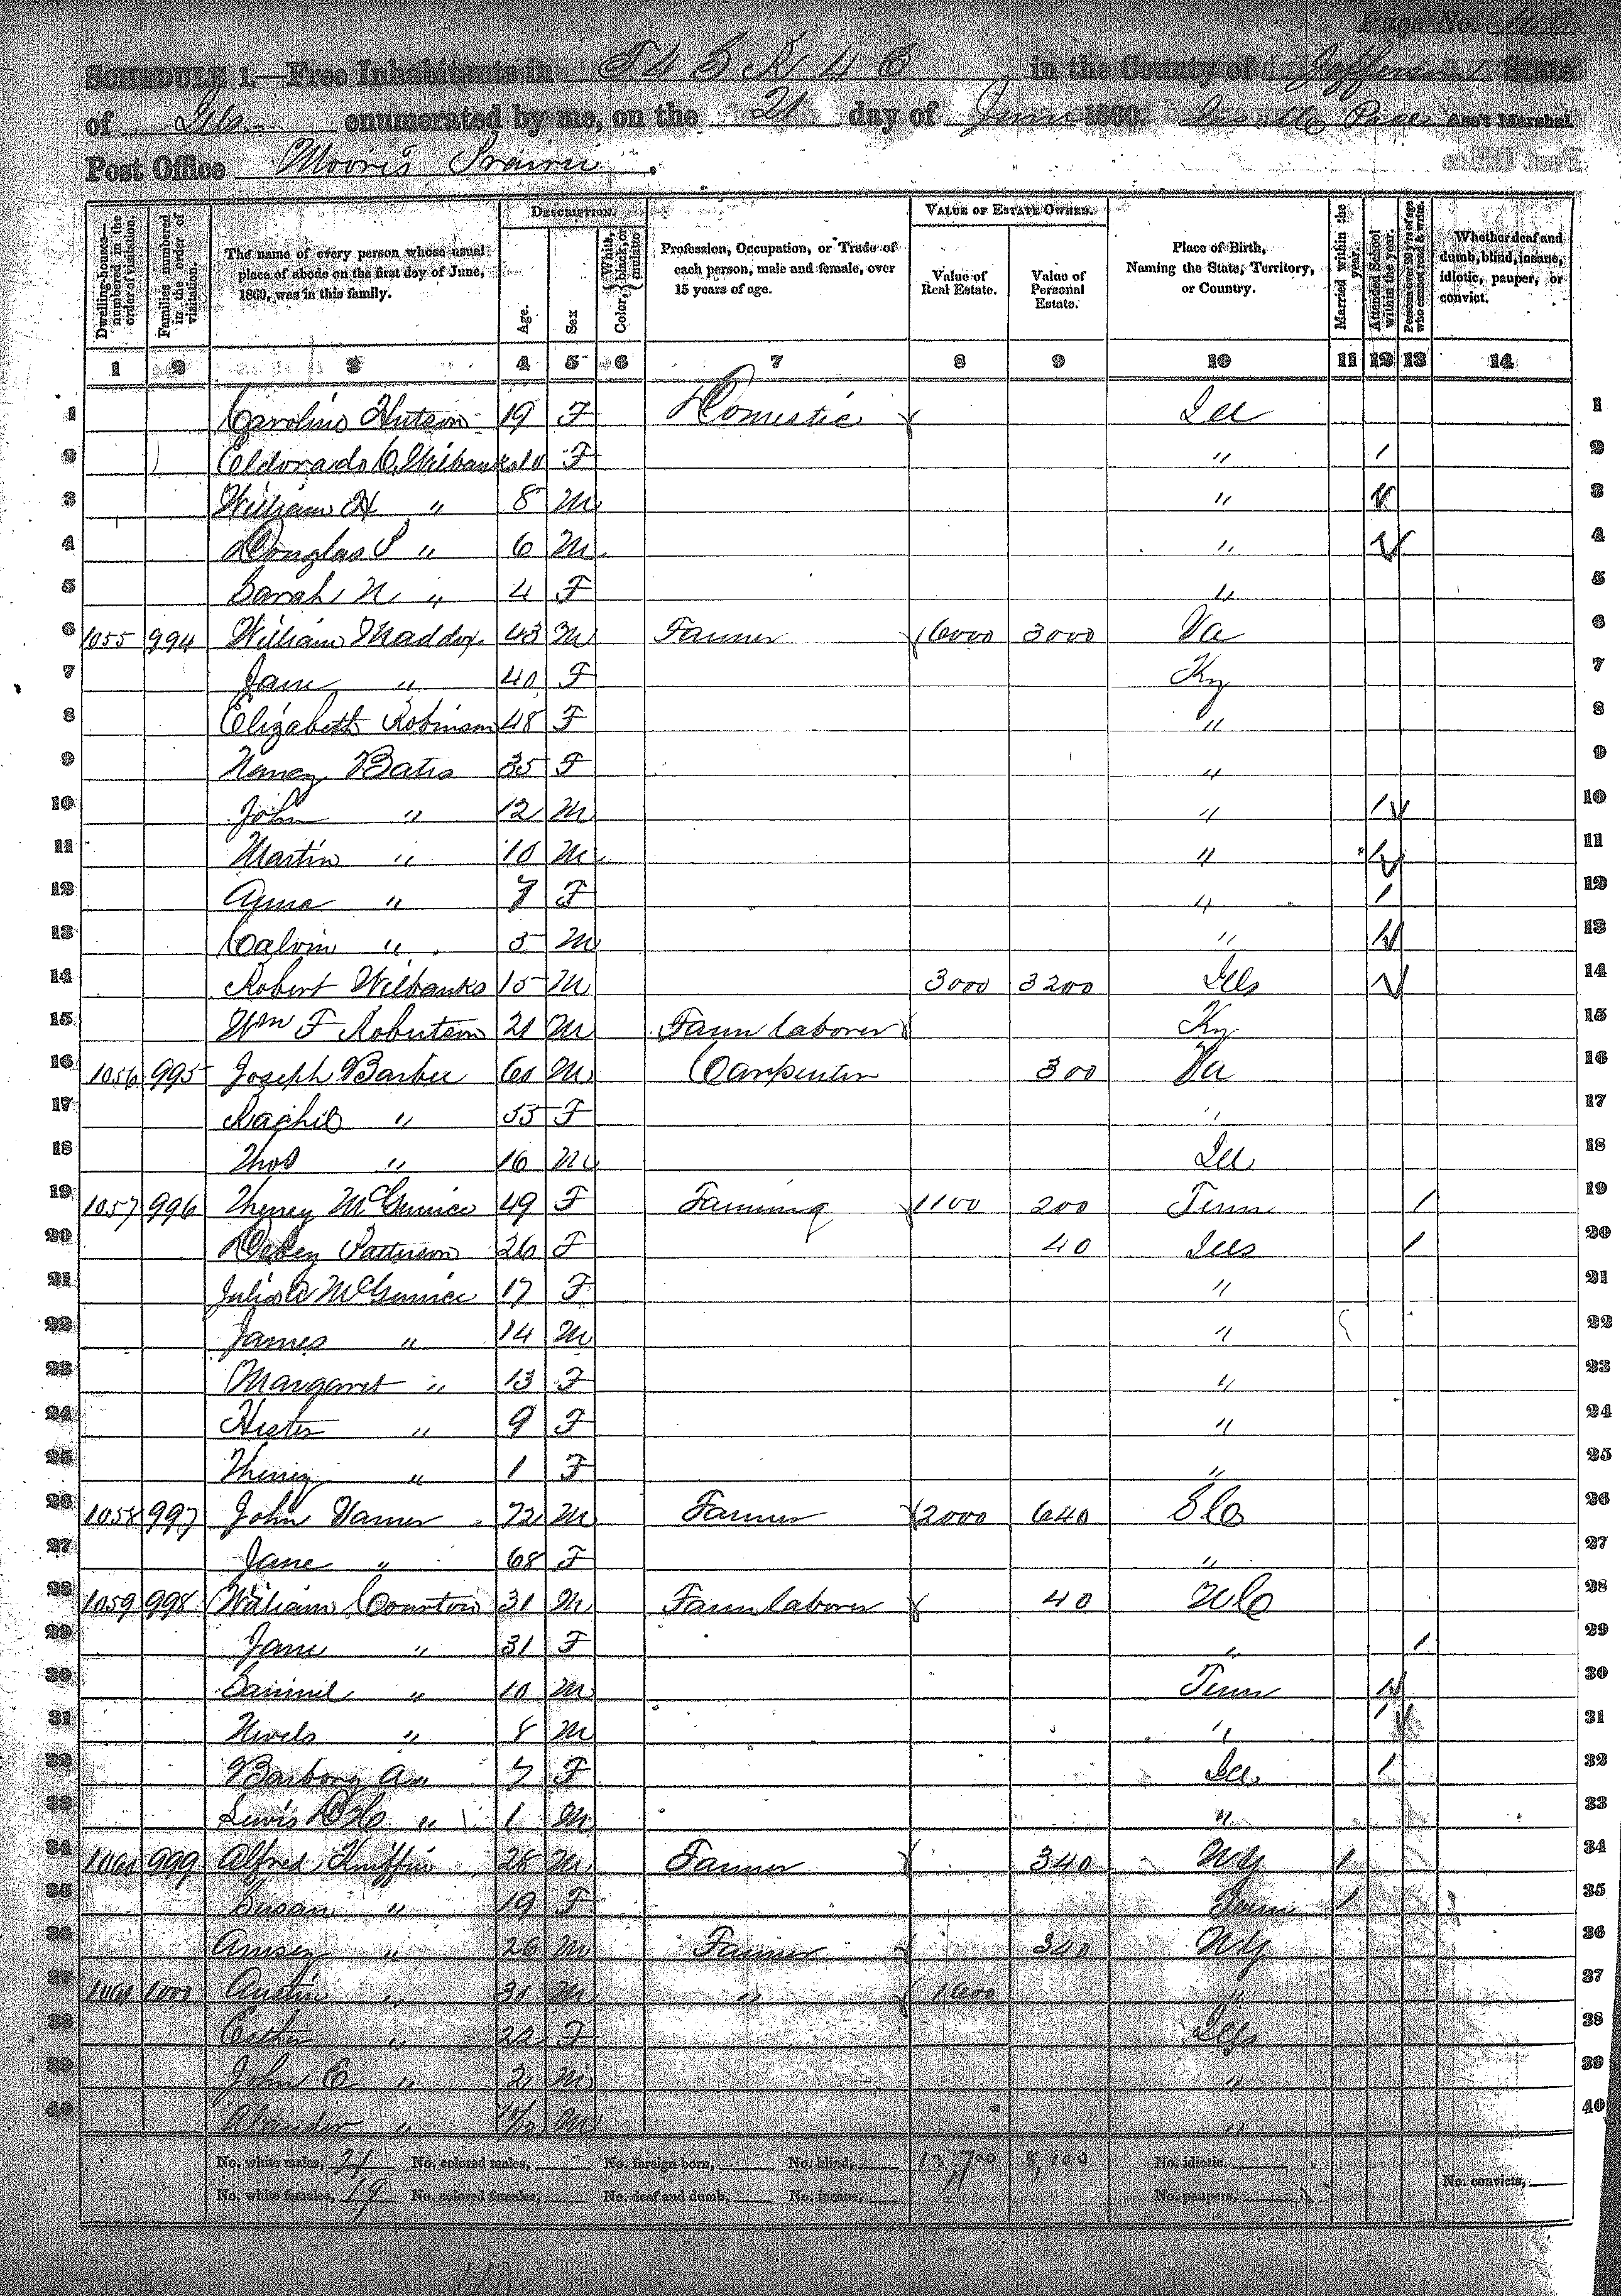 Page No. 146
SCHEDULE 1.—Free Inhabitants in T 4 S R 4 E in the County of Jefferson State
of Ills. enumerated by me, on the 21 day of June 1860. Ass't Marshal.
Post Office Moores Prairie.
Dwelling-houses—numbered in the order of visitation.
Families numbered in the order of visitation.
The name of every person whose usual place of abode on the first day of June, 1860, was in this family.
DESCRIPTION.
Age.
Sex
Color, { White, black, or mulatto
Profession, Occupation, or Trade of each person, male and female, over 15 years of age.
VALUE OF ESTATE OWNED.
Value of Real Estate.
Value of Personal Estate.
Place of Birth, Naming the State, Territory, or Country.
Married within the year.
Attended School within the year.
Persons over 20 y'rs of age who cannot read & write.
Whether deaf and dumb, blind, insane, idiotic, pauper, or convict.
1 2 3 4 5 6 7 8 9 10 11 12 13 14
1 Caroline Hutson 19 F Domestic Ill 1
2 Eldorado C. Wilbanks 10 F " / 2
3 William H " 8 M " / 3
4 Douglas P " 6 M " / 4
5 Sarah N " 4 F " 5
6 1055 994 William Maddox 43 M Farmer 6000 3000 Va 6
7 Jane " 40 F Ky 7
8 Elizabeth Robinson 48 F " 8
9 Nancy Bates 35 F " 9
10 John " 12 M " / 10
11 Martin " 10 M " / 11
12 Anna " 7 F " / 12
13 Calvin " 5 M " / 13
14 Robert Wilbanks 15 M 3000 3200 Ills / 14
15 Wm F Robertson 21 M Farm laborer Ky 15
16 1056 995 Joseph Barbee 60 M Carpenter 300 Va 16
17 Rachil " 55 F " 17
18 Thos " 16 M Ill 18
19 1057 996 McGuinice 49 F Farming 1100 200 Tenn / 19
20 Patterson 26 F 40 Ills / 20
21 Julia A McGuinice 17 F " 21
22 James " 14 M " 22
23 Margaret " 13 F " 23
24 Hester " 9 F " 24
25 " 1 F " 25
26 1058 997 John 72 M Farmer 2000 640 S C 26
27 Jane " 68 F " 27
28 1059 998 William 31 M Farm laborer 40 N C 28
29 Jane " 31 F " / 29
30 Samuel " 10 M Tenn / 30
31 " 8 M " / 31
32 Barbory A " 7 F Ill / 32
33 Lewis " 1 M " 33
34 1060 999 Alfred Kniffin 28 M Farmer 340 N Y / 34
35 Susan " 19 F Tenn / 35
36 Amsey " 26 M Farmer 340 N Y 36
37 1061 1000 Austin " 31 M " 1600 " 37
38 Esther " 22 F Ills 38
39 John E " 2 M " 39
40 " 10/12 M " 40
No. white males, 21 No. colored males, No. foreign born, No. blind, 13,700 8,100 No. idiotic.
No. white females, 19 No. colored females, No. deaf and dumb, No. insane, No. paupers, No. convicts,